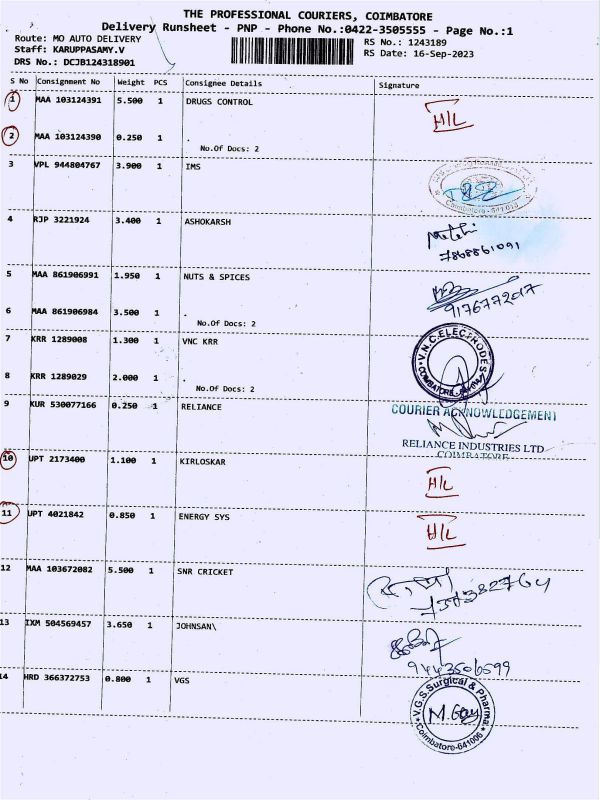 THE PROFESSIONAL COURIERS, COIMBATORE
Delivery Runsheet - PNP - Phone No.:0422-3505555 - Page No.:1
Route: MO AUTO DELIVERY
RS No.: 1243189
Staff: KARUPPASAMY.V
RS Date: 16-Sep-2023
DRS No.: DCJB124318901
S No Consignment No Weight PCS Consignee Details Signature
1 MAA 103124391 5.500 1 DRUGS CONTROL H/L
2 MAA 103124390 0.250 1 .
No.Of Docs: 2
3 VPL 944804767 3.900 1 IMS
Coimbatore - 641 013
4 RJP 3221924 3.400 1 ASHOKARSH
7868861091
5 MAA 861906991 1.950 1 NUTS & SPICES
9176772017
6 MAA 861906984 3.500 1 .
No.Of Docs: 2
7 KRR 1289008 1.300 1 VNC KRR
V.N.C. ELECTRODES
8 KRR 1289029 2.000 1 .
No.Of Docs: 2
9 KUR 530077166 0.250 1 RELIANCE
COURIER ACKNOWLEDGEMENT
RELIANCE INDUSTRIES LTD
COIMBATORE
10 UPT 2173400 1.100 1 KIRLOSKAR H/L
11 UPT 4021842 0.850 1 ENERGY SYS H/L
12 MAA 103672082 5.500 1 SNR CRICKET
13 IXM 504569457 3.650 1 JOHNSAN\
9443506599
14 HRD 366372753 0.800 1 VGS
V.G.S. Surgical & Pharma
Coimbatore-641006